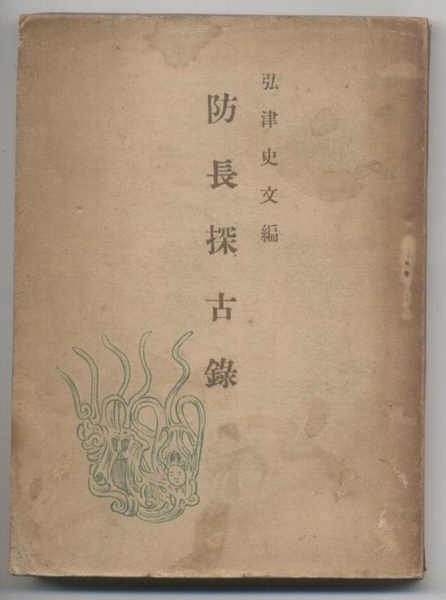 弘津史文編
防長探古錄